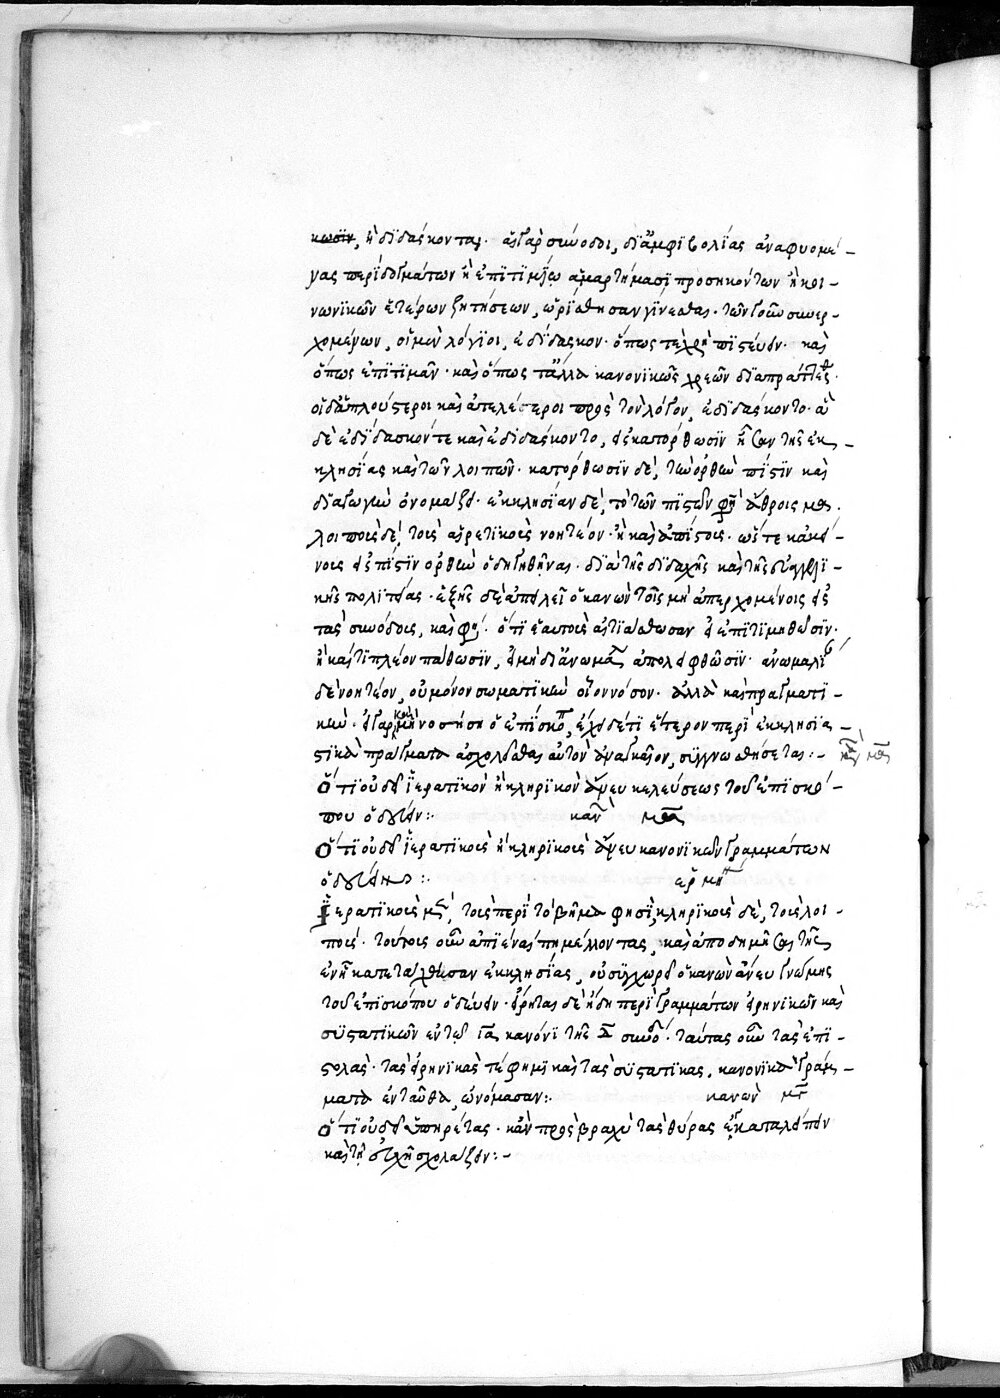 κωσιν, ἢ διδάσκονται· αἱ γὰρ σύνοδοι, δι' ἀμφιβολίας ἀναφυομέ-
νας περὶ δογμάτων ἢ ἐπιτιμίων ἁμαρτήμασι προσηκόντων ἢ κοι-
νωνικῶν ἑτέρων ζητήσεων, ὡρίσθησαν γίνεσθαι· τῶν γοῦν συνερ-
χομένων, οἱ μὲν λόγιοι, ἐδίδασκον· ὅπως τὲ χρὴ πιστεύειν· καὶ
ὅπως ἐπιτιμᾶν· καὶ ὅπως τἄλλα κανονικῶς χρεὼν διαπράττεσθαι·
οἱ δ' ἁπλούστεροι καὶ ἀτελέστεροι πρὸς τὸν λόγον, ἐδιδάσκοντο· ἃ
δὲ ἐδίδασκόν τε καὶ ἐδιδάσκοντο, εἰς κατόρθωσιν ἦσαν τῆς ἐκ-
κλησίας καὶ τῶν λοιπῶν· κατόρθωσιν δὲ, τὴν ὀρθὴν πίστιν καὶ
διαγωγὴν ὀνομάζει· ἐκκλησίαν δὲ, τὸ τῶν πιστῶν φησὶ ἄθροισμα·
λοιποὺς δὲ, τοὺς αἱρετικοὺς νοητέον· ἢ καὶ ἀπίστους· ὥστε κἀκεί-
νους εἰς πίστιν ὀρθὴν ὁδηγηθῆναι· διὰ τῆς διδαχῆς καὶ τῆς εὐαγγελι-
κῆς πολιτείας· ἑξῆς δὲ ἀπειλεῖ ὁ κανὼν τοῖς μὴ ἀπερχομένοις εἰς
τὰς συνόδους, καὶ φησὶ· ὅτι ἑαυτοὺς αἰτιάσθωσαν εἰ ἐπιτιμηθῶσιν·
ἢ καί τι πλέον πάθωσιν, εἰ μὴ δι' ἀνωμαλίαν ἀπολειφθῶσιν· ἀνωμαλίαν
δὲ νοητέον, οὐ μόνον σωματικὴν οἷον νόσον· ἀλλὰ καὶ πραγματι-
κήν· εἰ γὰρ καὶ μὴ νοσήσῃ ὁ ἐπίσκοπος, ἔχει δέ τι ἕτερον περὶ ἐκκλησια-
στικὰ πράγματα ἀσχολεῖσθαι αὐτὸν ἀναγκαῖον, συγγνωσθήσεται:-
κανὼν μα
Ὅτι οὐ δεῖ ἱερατικὸν ἢ κληρικὸν ἄνευ κελεύσεως τοῦ ἐπισκό-
που ὁδεύειν:- κανὼν μβ
Ὅτι οὐ δεῖ ἱερατικοὺς ἢ κληρικοὺς ἄνευ κανονικῶν γραμμάτων
ὁδεύειν:- ἑρμη
Ἱερατικοὺς μὲν, τοὺς περὶ τὸ βῆμα φησὶ, κληρικοὺς δὲ, τοὺς λοι-
πούς· τούτους οὖν ἀπιέναι πῃ μέλλοντας, καὶ ἀποδημῆσαι τῆς
ἐν ᾗ κατετάχθησαν ἐκκλησίας, οὐ συγχωρεῖ ὁ κανὼν ἄνευ γνώμης
τοῦ ἐπισκόπου ὁδεύειν· εἴρηται δὲ ἤδη περὶ γραμμάτων εἰρηνικῶν καὶ
συστατικῶν ἐν τῷ ια κανόνι τῆς δ συνόδου· ταύτας οὖν τὰς ἐπι-
στολάς· τὰς εἰρηνικὰς τέ φημι καὶ τὰς συστατικάς, κανονικὰ γράμ-
ματα ἐνταῦθα, ὠνόμασαν:- κανὼν μγ
Ὅτι οὐ δεῖ ὑπηρέτας· κἂν πρὸς βραχὺ τὰς θύρας ἐγκαταλείπειν
καὶ τῇ εὐχῇ σχολάζειν:-